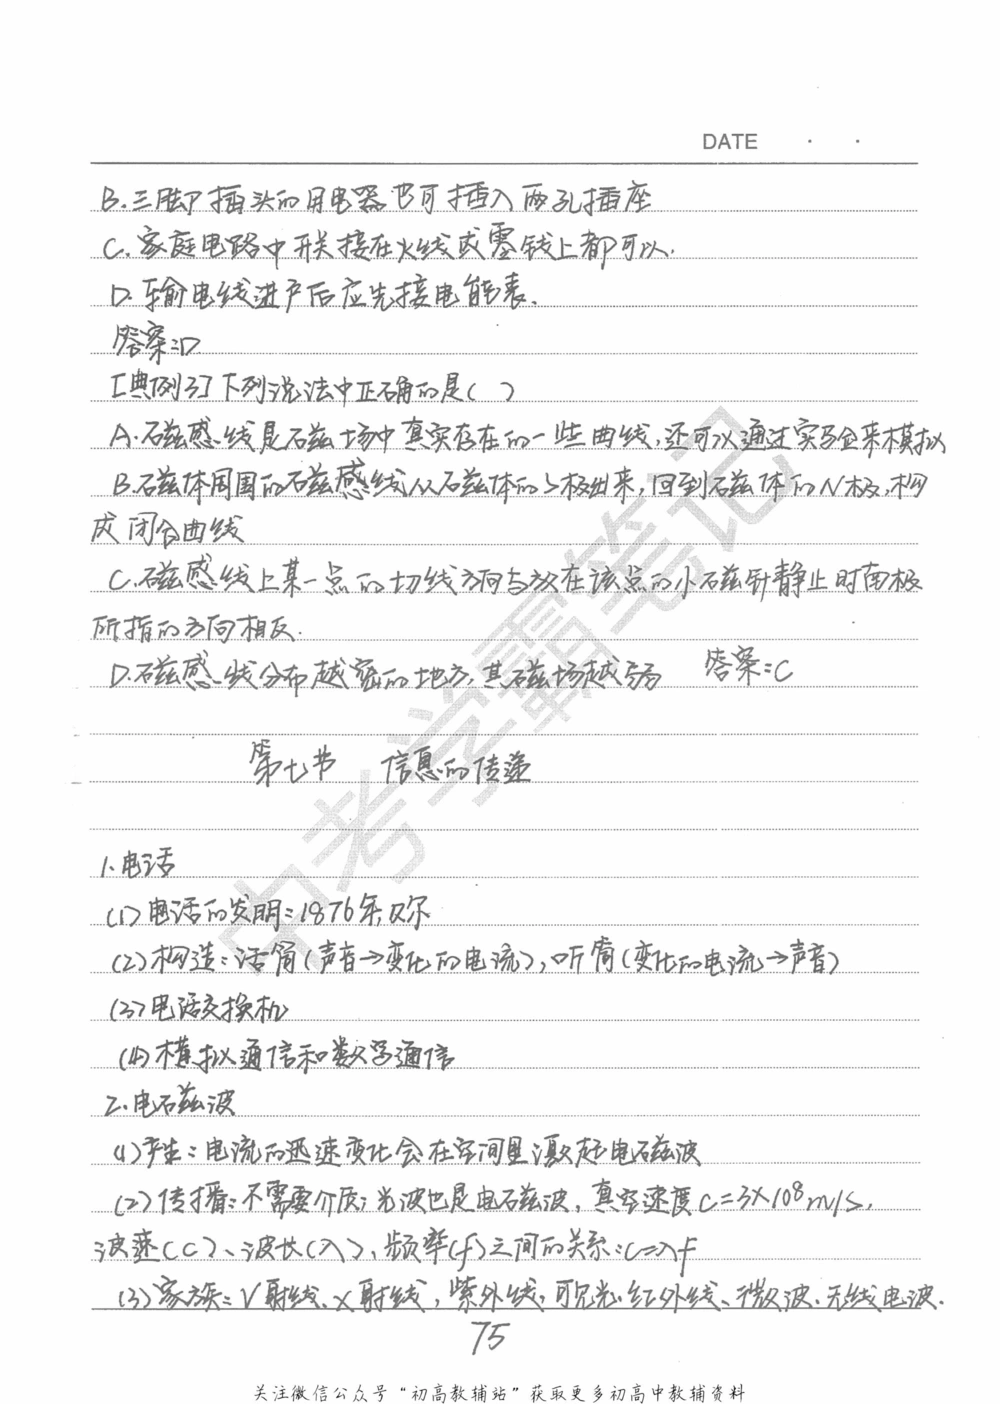 DATE · ·
B.三脚插头的用电器也可插入两孔插座
C.家庭电路中开关接在火线或零线上都可以.
D.输电线进户后应先接电能表.
答案:D
[典例3]下列说法中正确的是( )
A.磁感线是磁场中真实存在的一些曲线,还可以通过实验来模拟
B.磁体周围的磁感线从磁体的S极出来,回到磁体的N极,构
成闭合曲线
C.磁感线上某一点的切线方向与放在该点的小磁针静止时南极
所指的方向相反.
D.磁感线分布越密的地方,其磁场越弱 答案:C
第七节 信息的传递
1.电话
(1)电话的发明:1876年贝尔
(2)构造:话筒(声音→变化的电流),听筒(变化的电流→声音)
(3)电话交换机
(4)模拟通信和数字通信
2.电磁波
(1)产生:电流的迅速变化会在空间里激起电磁波
(2)传播:不需要介质;光波也是电磁波,真空速度C=3×10⁸m/s,
波速(C)、波长(λ),频率(f)之间的关系:C=λf
(3)家族:γ射线、X射线,紫外线,可见光.红外线、微波.无线电波.
75
关注微信公众号“初高教辅站”获取更多初高中教辅资料
中考学霸笔记